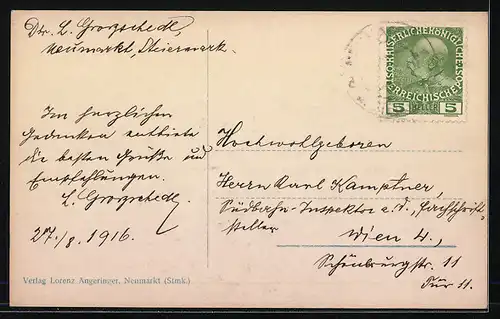 Dr. L. Grogschedl,
Neumarkt, Steiermark.
Im herzlichen
Gedenken entbiete
die besten Grüße und
Empfehlungen.
L. Grogschedl
27./8. 1916.
Verlag Lorenz Angeringer, Neumarkt (Stmk.)
KAISERLICHE KÖNIGLICHE
ÖSTERREICHISCHE
5 HELLER 5
Hochwohlgeboren
Herrn Karl Kamptner,
Südbahn-Inspektor a. D., Fachschrift-
steller
Wien 4.,
Schönburgstr. 11
Tür 11.